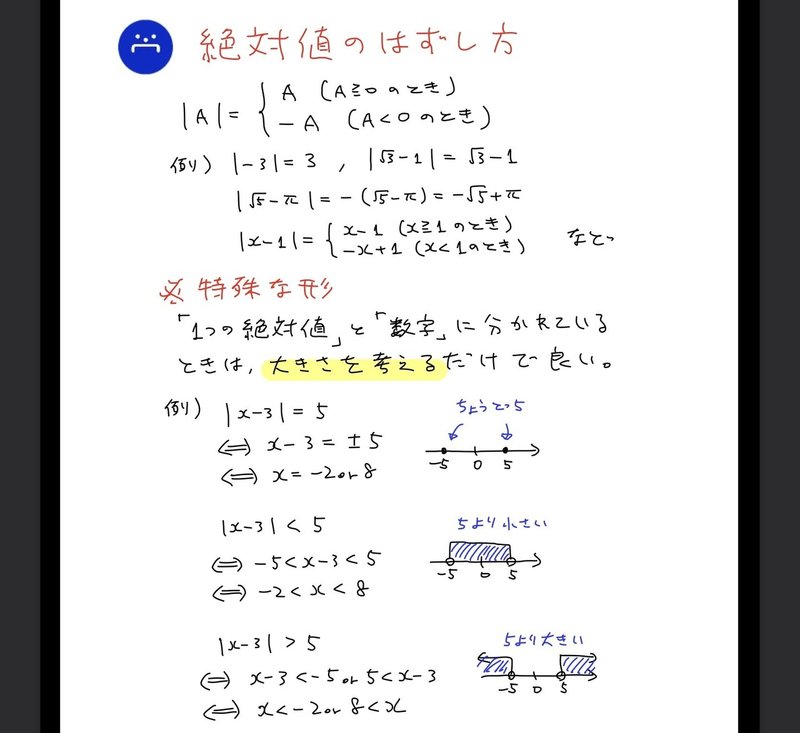 絶対値のはずし方
|A| = { A (A≧0のとき)
−A (A<0のとき)
例) |−3| = 3 , |√3−1| = √3−1
|√5−π| = −(√5−π) = −√5+π
|x−1| = { x−1 (x≧1のとき)
−x+1 (x<1のとき) など
※ 特殊な形
「1つの絶対値」と「数字」に分かれている
ときは, 大きさを考えるだけで良い。
例) |x−3| = 5
ちょうど5
⇔ x−3 = ±5
−5 0 5
⇔ x = −2 or 8
|x−3| < 5
5より小さい
⇔ −5 < x−3 < 5
−5 0 5
⇔ −2 < x < 8
|x−3| > 5
5より大きい
⇔ x−3 < −5 or 5 < x−3
−5 0 5
⇔ x < −2 or 8 < x